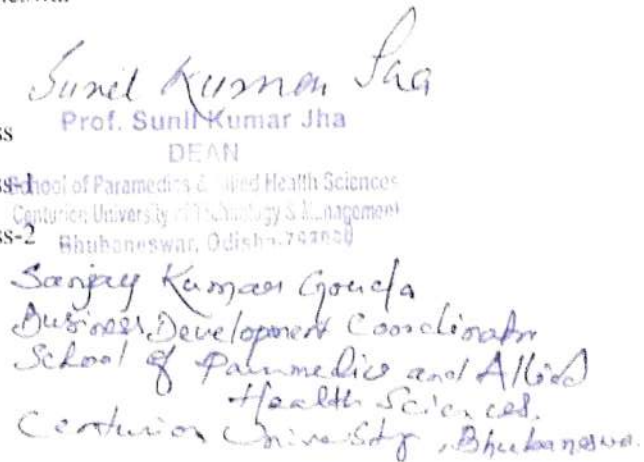 Sunil Kumar Jha
ss
Prof. Sunil Kumar Jha
DEAN
ss-1
School of Paramedics & Allied Health Sciences
Centurion University of Technology & Management
ss-2
Bhubaneswar, Odisha
Sanjay Kumar Gouda
Business Development Coordinator
School of Paramedics and Allied
Health Sciences.
Centurion University, Bhubaneswa.